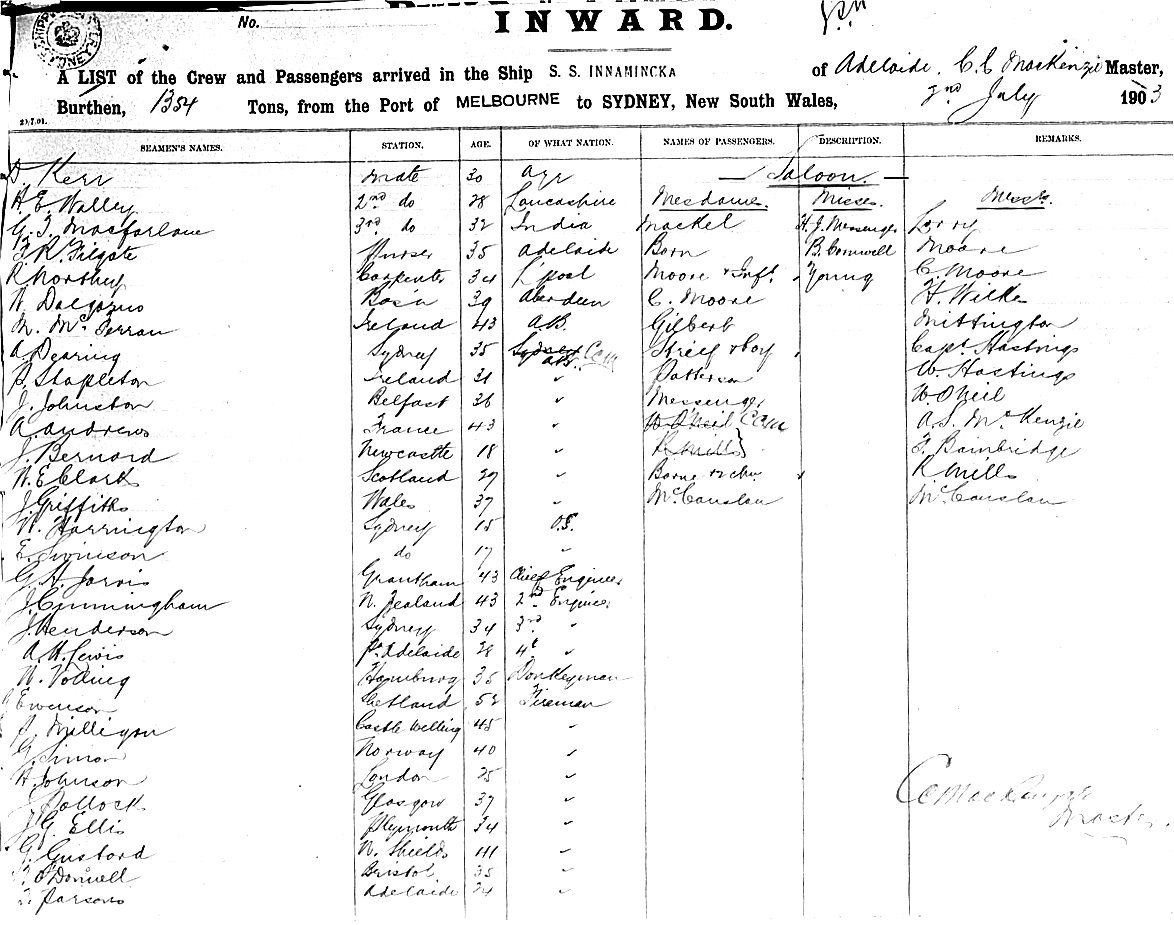 No.
INWARD.
A LIST of the Crew and Passengers arrived in the Ship S. S. INNAMINCKA of Adelaide, C. C. MacKenzie Master,
Burthen, 1354 Tons, from the Port of MELBOURNE to SYDNEY, New South Wales, 2nd July 1903
SEAMEN'S NAMES. STATION. AGE. OF WHAT NATION. NAMES OF PASSENGERS. DESCRIPTION. REMARKS.
D. Kerr Mate 30 Ayr — Saloon. —
H. E. Walley 2nd do 28 Lancashire Mesdames. Misses. Messrs.
G. T. Macfarlane 3rd do 32 India Mackel H. J. Messenger Lorry
F. R. Filgate Purser 35 Adelaide Born B. Cornwell Moore
R Northey Carpenter 34 L'pool Moore & Inft. Young C. Moore
W. Dalgarno Bos'n 39 Aberdeen C. Moore H. Wilke
N. Mc Ferran Ireland 43 A.B. Gilbert Mittington
A. Dearing Sydney 35 Sydney A.B. CCM Streif & boy Capt. Hastings
P. Stapleton Ireland 31 " Patterson W. Hastings
J. Johnston Belfast 36 " Messenger W. O'Neil
A. Andrews France 43 " W O'Neil CCM A. S. Mc Kenzie
J. Bernard Newcastle 18 " R Mills F. Bainbridge
W. E Clark Scotland 29 " Borne & chn R Mills
J. Griffiths Wales 37 " McCauslan McCauslan
W. Harrington Sydney 15 O.S.
E. Swinson do 17 "
G. H. Jarvis Grantham 43 Chief Engineer
J. Cunningham N. Zealand 43 2nd Engineer
J. Henderson Sydney 34 3rd "
A. H. Lewis Pt Adelaide 28 4th "
W. Voding Hamburg 35 Donkeyman
Ewenson Shetland 52 Fireman
J. Milligan Castle Welling 45 "
G. Simon Norway 40 "
A. Johnson London 25 "
J Pollock Glasgow 37 "
J. G. Ellis Plymouth 34 "
G. Gustard N. Shields 41 "
O'Donnell Bristol 35 "
T. Parsons Adelaide 24 "
CC MacKenzie
Master.